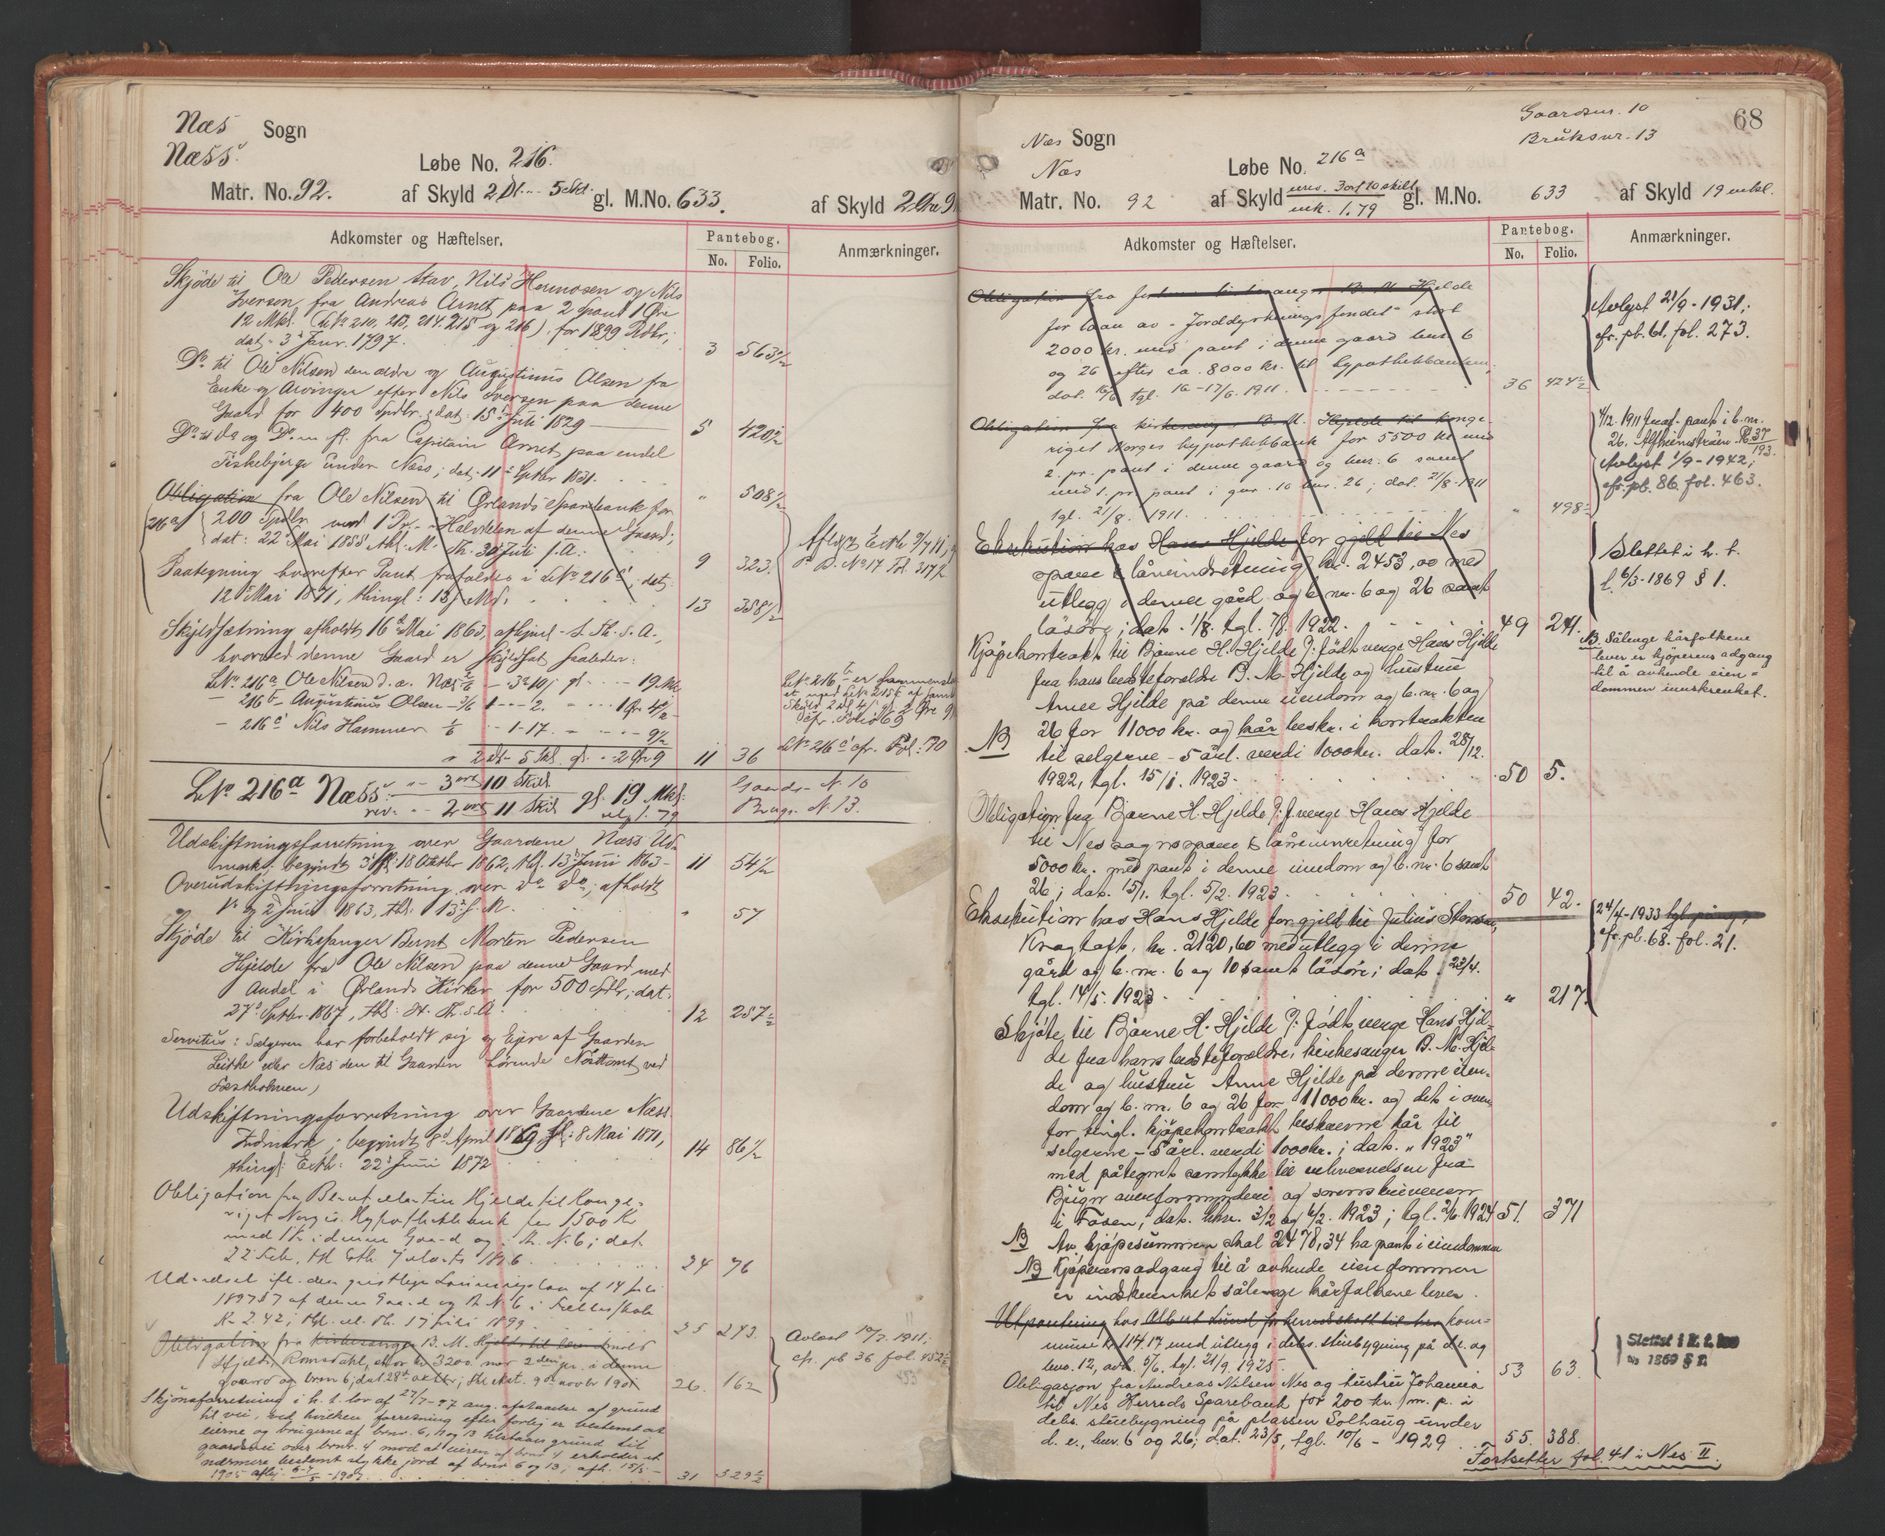 Næs Sogn
Næss
Løbe No. 216.
Matr. No. 92. af Skyld 2 Dl. - 5 Skl. gl. M.No. 633. af Skyld 2 Øre 9
Adkomster og Hæftelser. Pantebog. Anmærkninger.
No. Folio.
Skjøde til Ole Pedersen Stav, Nils Hermosen og Nils
Iversen, fra Andreas Arnet paa 2 Spand 1 Øre
12 Mkl. (LNo 210, 213, 214, 215 og 216), for 1899 Spdlr.;
dat. 3 Janr. 1797. 3 563 1/2
Do til Ole Nilsen den ældre og Augustinus Olsen fra
Enke og Arvinger efter Nils Iversen paa denne
Gaard for 400 Spdlr.; dat: 15 Juli 1829 5 420 1/2
Do til do og Do m. fl. fra Capitain Arnet paa endel
Fiskebjerge under Næss; dat. 11 Septbr 1831. " 508 1/2
Obligation fra Ole Nilsen til Ørlands Sparebank for
216a 200 Spdlr. med 1 Pr. i Halvdelen af denne Gaard;
dat: 22 Mai 1855 Thl. M. Th. 30 Juli s. A. 9 323.
Aflyst Extb 9/7 11,
P. B. No 17 Fol. 317 1/2
Paategning hvorefter Pant frafaldes i LNo 216c; dat:
12 Mai 1871, thingl: 13 s. Md. 13 358 1/2
Skyldsætning afholdt 16 Mai 1863, afhjml. S. Th. s. A.,
hvorved denne Gaard er skyldsat saaledes:
LNo 216a Ole Nilsen d. æ. Næs 2/6 - 3 10/ gl. - 19 Mkl.
" 216b - Augustinus Olsen - 3/6 1 - 2. 1 Øre 4 1/2
- 216c Nils Hammer 1/6 - 1-17. - 9 1/2
" 2 dl - 5 Skl. gl. - 2 Øre 9 11 36
LNo 216b er sammensl-
et med LNo 215 af saml.
Skyld 2 dl 4/ gl. 2 Øre 9
cfr. Folio 69
LNo 216c cfr. Fol: 70
LNo 216a Næss: - 3 ort 10 Skill
rev. - 2 ort 11 Skill gl. 19 Mkl.
Gaards-N. 10
Brugs-N. 13.
Udskiftningsforretning over Gaardene Næss Ud-
mark, begyndt 3 fl: 18 Oktbr 1862, thl. 13 Juni 1863 - 11 54 1/2
Overudskiftningsforretning over do do; afholdt
1 og 2 Juni 1863, thl: 13 s. M. " 57
Skjøde til Kirkesanger Bernt Morten Pedersen
Hjelde fra Ole Nilsen paa denne Gaard med
Andel i Ørlands Kirker for 500 Spdlr.; dat.
27 Septbr. 1867, thl: H. Th. s. A. 12 257 1/2
Servitus: Sælgeren har forbeholdt sig og Ejere af Gaarden
Leithe eller Næs den til Gaarden hørende Nøsttomt ved
Fæstholmen)
Udskiftningsforretning over Gaardene Næss
Indmark; begyndt 8 April 1869 fl: 8 Mai 1871,
thingl: Extb: 22 Juni 1872 14 86 1/2
Obligation fra Bernt Martin Hjelde til Konge-
riget Norges Hypothekbank for 1500 Kr
med 1 Pr. i denne Gaard og Br. N. 6; dat.
22 Feb., thl Extb 7 Marts 1896 24 76
Udskrift ifl. den
1897
K- 2.42; thl. 17 Juli 1899. 25 243.
Obligation fra kirkesanger B. M. Hjelde til
Hjelde, Romsdahl, stor kr 3200 mod 2den pr. i denne
gaard og brno 6; dat 28 oktbr; thl. 9 novbr 1901 26. 162
Avlæst 10/7. 1911;
cfr. pb 36 fol. 452 1/2
Skjønsforretning i h. t. lov af 27/7-97 ang. afstaaelse af grund
til vei, ved hvilken forretning efter forlig er bestemt at
eierne og brugerne af brnr. 6, 11 og 13
gaardsvei over brnr. 4 mod at eieren af brnr 4 erholder et
nærmere bestemt stykke jord af brnr 6 og 13; afh. 15/5 -
1905 31 329 1/2
68
Gaardsnr. 10
Bruksnr. 13
Næs Sogn
Næs
Løbe No. 216a
Matr. No. 92 af Skyld urev. 3 ort 10 skill
mk. 1.79 gl. M.No. 633 af Skyld 19 mkl.
Adkomster og Hæftelser. Pantebog. Anmærkninger.
No. Folio.
Obligation fra forhen kirkesanger B. M. Hjelde
for laan av "Jorddyrkningsfondet" stort
2000 kr. med pant i denne gaard bnr. 6
og 26 efter ca. 8000 kr. til hypothekbanken;
dat. 16/6 tgl. 16-17/6. 1911. 36 424 1/2
Avlyst 21/9 - 1931;
cfr. pb. 61. fol. 273.
Obligation fra kirkesanger B. M. Hjelde til Konge-
riget Norges hypothekbank for 5500 kr med
2. pr. pant i denne gaard og bnr. 6 samt
med 1. pr. pant i gnr. 10 bnr. 26; dat. 21/8 - 1911
tgl. 21/8. 1911. " 498 1/2
4/12. 1911 pant i b. nr.
26. P. 37/193.
Avlyst 1/9 - 1942;
cfr. pb. 86. fol. 463.
Eksekution hos Hans Hjelde for gjeld til Nes
spare & låneindretning kr. 2453,00 med
utlegg i denne gård og b. nr. 6 og 26 samt
løsøre; dat. 1/8. tgl. 7/8. 1922. 49 241.
Slettet i h. t.
l. 6/3 - 1869 § 1.
Kjøpekontrakt til Bjarne H. Hjelde ɔ: født verge Hans Hjelde
fra hans besteforældre B. M. Hjelde og hustru
Anne Hjelde på denne eiendom og b. nr. 6 og
26 for 11000 kr. og kår beskr. i kontrakten
NB til selgerne - 5 årl. verdi 1000 kr. dat. 28/12.
1922, tgl. 15/1. 1923. 50 5.
NB. Sålenge kårfolkene
lever er kjøperens adgang
til å avhende eien-
dommen innskrenket.
Obligation fra Bjarne H. Hjelde ɔ: f. verge Hans Hjelde
til Nes sogns spare & låneinnretning for
5000 kr. med pant i denne eiendom og b. nr. 6 samt
26; dat. 15/1. tgl. 5/2. 1923. 50 42.
Eksekution hos Hans Hjelde for gjeld til Julius Storsen,
Kragtaft, kr. 2120,60 med utlegg i denne
gård og b. nr. 6 og 10 samt løsøre; dat. 23/4.
tgl. 14/5. 1923. " 217.
24/4 - 1933
cfr. pb. 68. fol. 21.
Skjøte til Bjarne H. Hjelde ɔ: født, verge Hans Hjel-
de fra hans besteforældre, kirkesanger B. M. Hjel-
de og hustru Anne Hjelde på denne eien-
dom og b. nr. 6 og 26 for 11000 kr. og det i oven-
for tingl. kjøpekontrakt beskrevne kår til
selgerne - 5 årl. verdi 1000 kr.; dat. "1923"
med påtegnet samtykke til erhvervelsen fra
Bjugn overformynderi og sorenskriveren
i Fosen, dat. hhv. 3/2 og 6/2. 1923; tgl. 2/6. 1924 51. 371
NB Av kjøpesummen skal 2478,34 ha pant i eiendommen
NB Kjøperens adgang til å avhende eiendommen
er indskrenket sålenge kårfolkene lever.
Utpantning hos Albert Lund for herredsskatt til Nes kom-
mune kr 114.17 med utlegg i debs. stuebygning på d. e. og
bnr. 12, avh. 5/6. tgl. 21/9. 1925. 53 63.
Slettet i h. t. lov
1869 § 1.
Obligasjon fra Andreas Nilsen Nes og hustru Johanna
til Nes Herreds Sparebank for 200 kr. m. p. i
debs. stuebygning på plassen Solhaug under
d. e., bnr. 6 og 26; dat. 23/5, tgl. 10/6 - 1929 55. 388.
Fortsetter fol. 41 i Nes II.